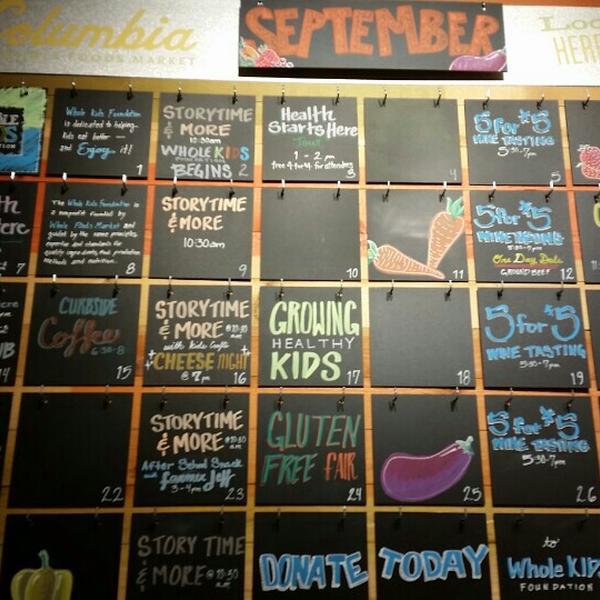 Columbia
FOODS MARKET
SEPTEMBER
HERE
Whole Kids Foundation
is dedicated to helping
kids eat better —
and Enjoy it!
1
STORYTIME
& MORE
10:30am
WHOLE KIDS
BEGINS 2
Health
Starts Here
Tour
1 - 2 pm
3
4
5 for $5
WINE TASTING
5:30-7pm
5
7
The Whole Kids Foundation is
a nonprofit founded by
Whole Foods Market and
8
STORYTIME
& MORE
10:30am
9
10
11
5 for $5
WINE TASTING
One Day Sale
GROUND BEEF
12
CURBSIDE
Coffee
6:30-8
15
STORYTIME
& MORE @10:30
am
with Kids Crafts
CHEESE NIGHT
@ 7pm 16
GROWING
HEALTHY
KIDS
17
18
5 for 5
WINE TASTING
5:30-7pm
19
22
STORYTIME
& MORE @10:30
am
After School Snack
with Farmer Jeff
3-4pm 23
GLUTEN
FREE FAIR
24
25
5 for $5
WINE TASTING
5:30-7pm
26
STORY TIME
& MORE @10:30
am
DONATE
TODAY
to
Whole KIDS
FOUNDATION